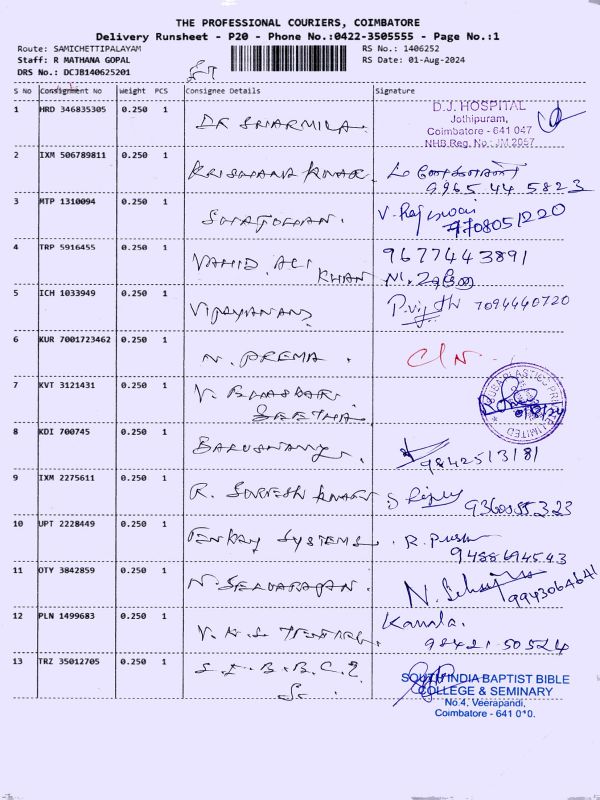 THE PROFESSIONAL COURIERS, COIMBATORE
Delivery Runsheet - P20 - Phone No.:0422-3505555 - Page No.:1
Route: SAMICHETTIPALAYAM RS No.: 1406252
Staff: R MATHANA GOPAL RS Date: 01-Aug-2024
DRS No.: DCJB140625201
S No Consignment No Weight PCS Consignee Details Signature
1 HRD 346835305 0.250 1 DR SHARMILA.
D.J. HOSPITAL
Jothipuram,
Coimbatore - 641 047
NHB Reg. No.: JM 2057
2 IXM 506789811 0.250 1 KRISHANA KUMAR.
9965 44 5823
3 MTP 1310094 0.250 1 V. Rajeswari
7708051220
4 TRP 5916455 0.250 1 VAHID ALI KHAN 9677443891
5 ICH 1033949 0.250 1 VIJAYANAND 7094440720
6 KUR 7001723462 0.250 1 N. PREMA.
7 KVT 3121431 0.250 1 V. BHASKAR
SEETHA
8 KDI 700745 0.250 1 BALUSWAMY.
9842513181
9 IXM 2275611 0.250 1 R. SURESH KUMAR
10 UPT 2228449 0.250 1 SYSTEMS.
11 OTY 3842859 0.250 1 N. SELVARAJAN.
9943064641
12 PLN 1499683 0.250 1 Kamala.
98421 50524
13 TRZ 35012705 0.250 1
SOUTH INDIA BAPTIST BIBLE
COLLEGE & SEMINARY
No.4, Veerapandi,
Coimbatore - 641 0*0.